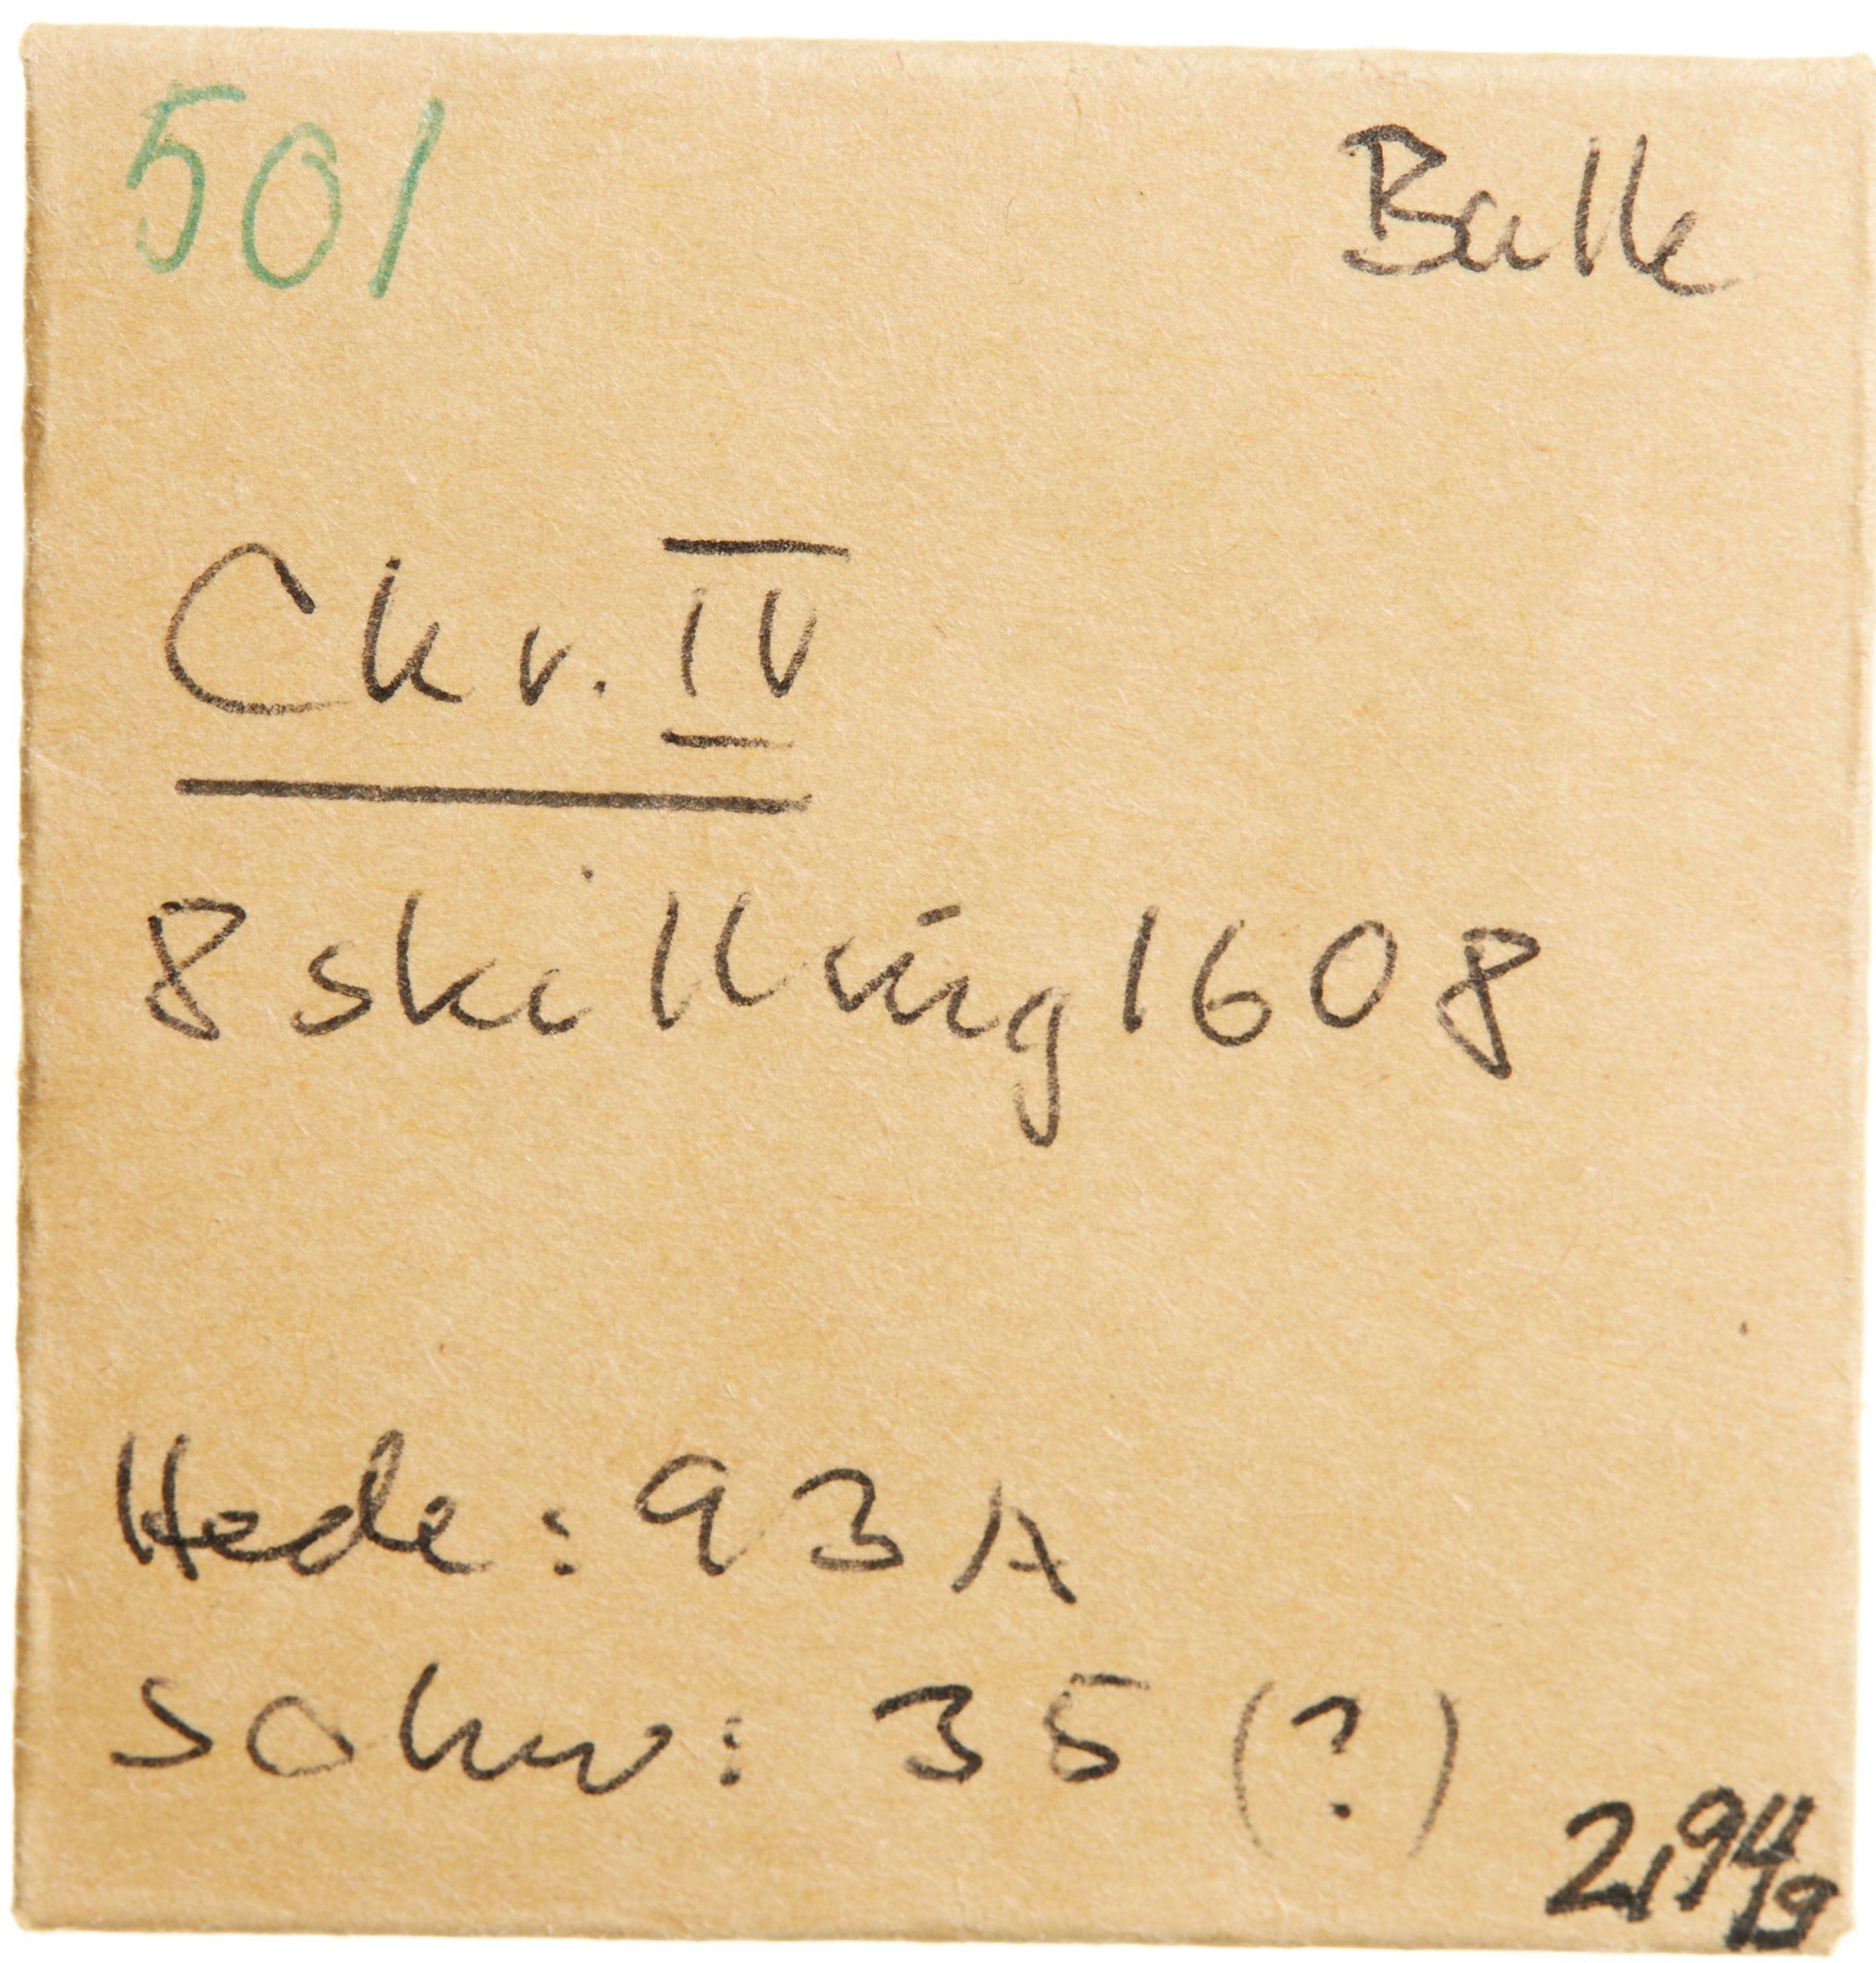 501 Balle
Chr. IV
8 skilling 1608
Hede: 93 A
Schw: 35 (?)
2,94 g